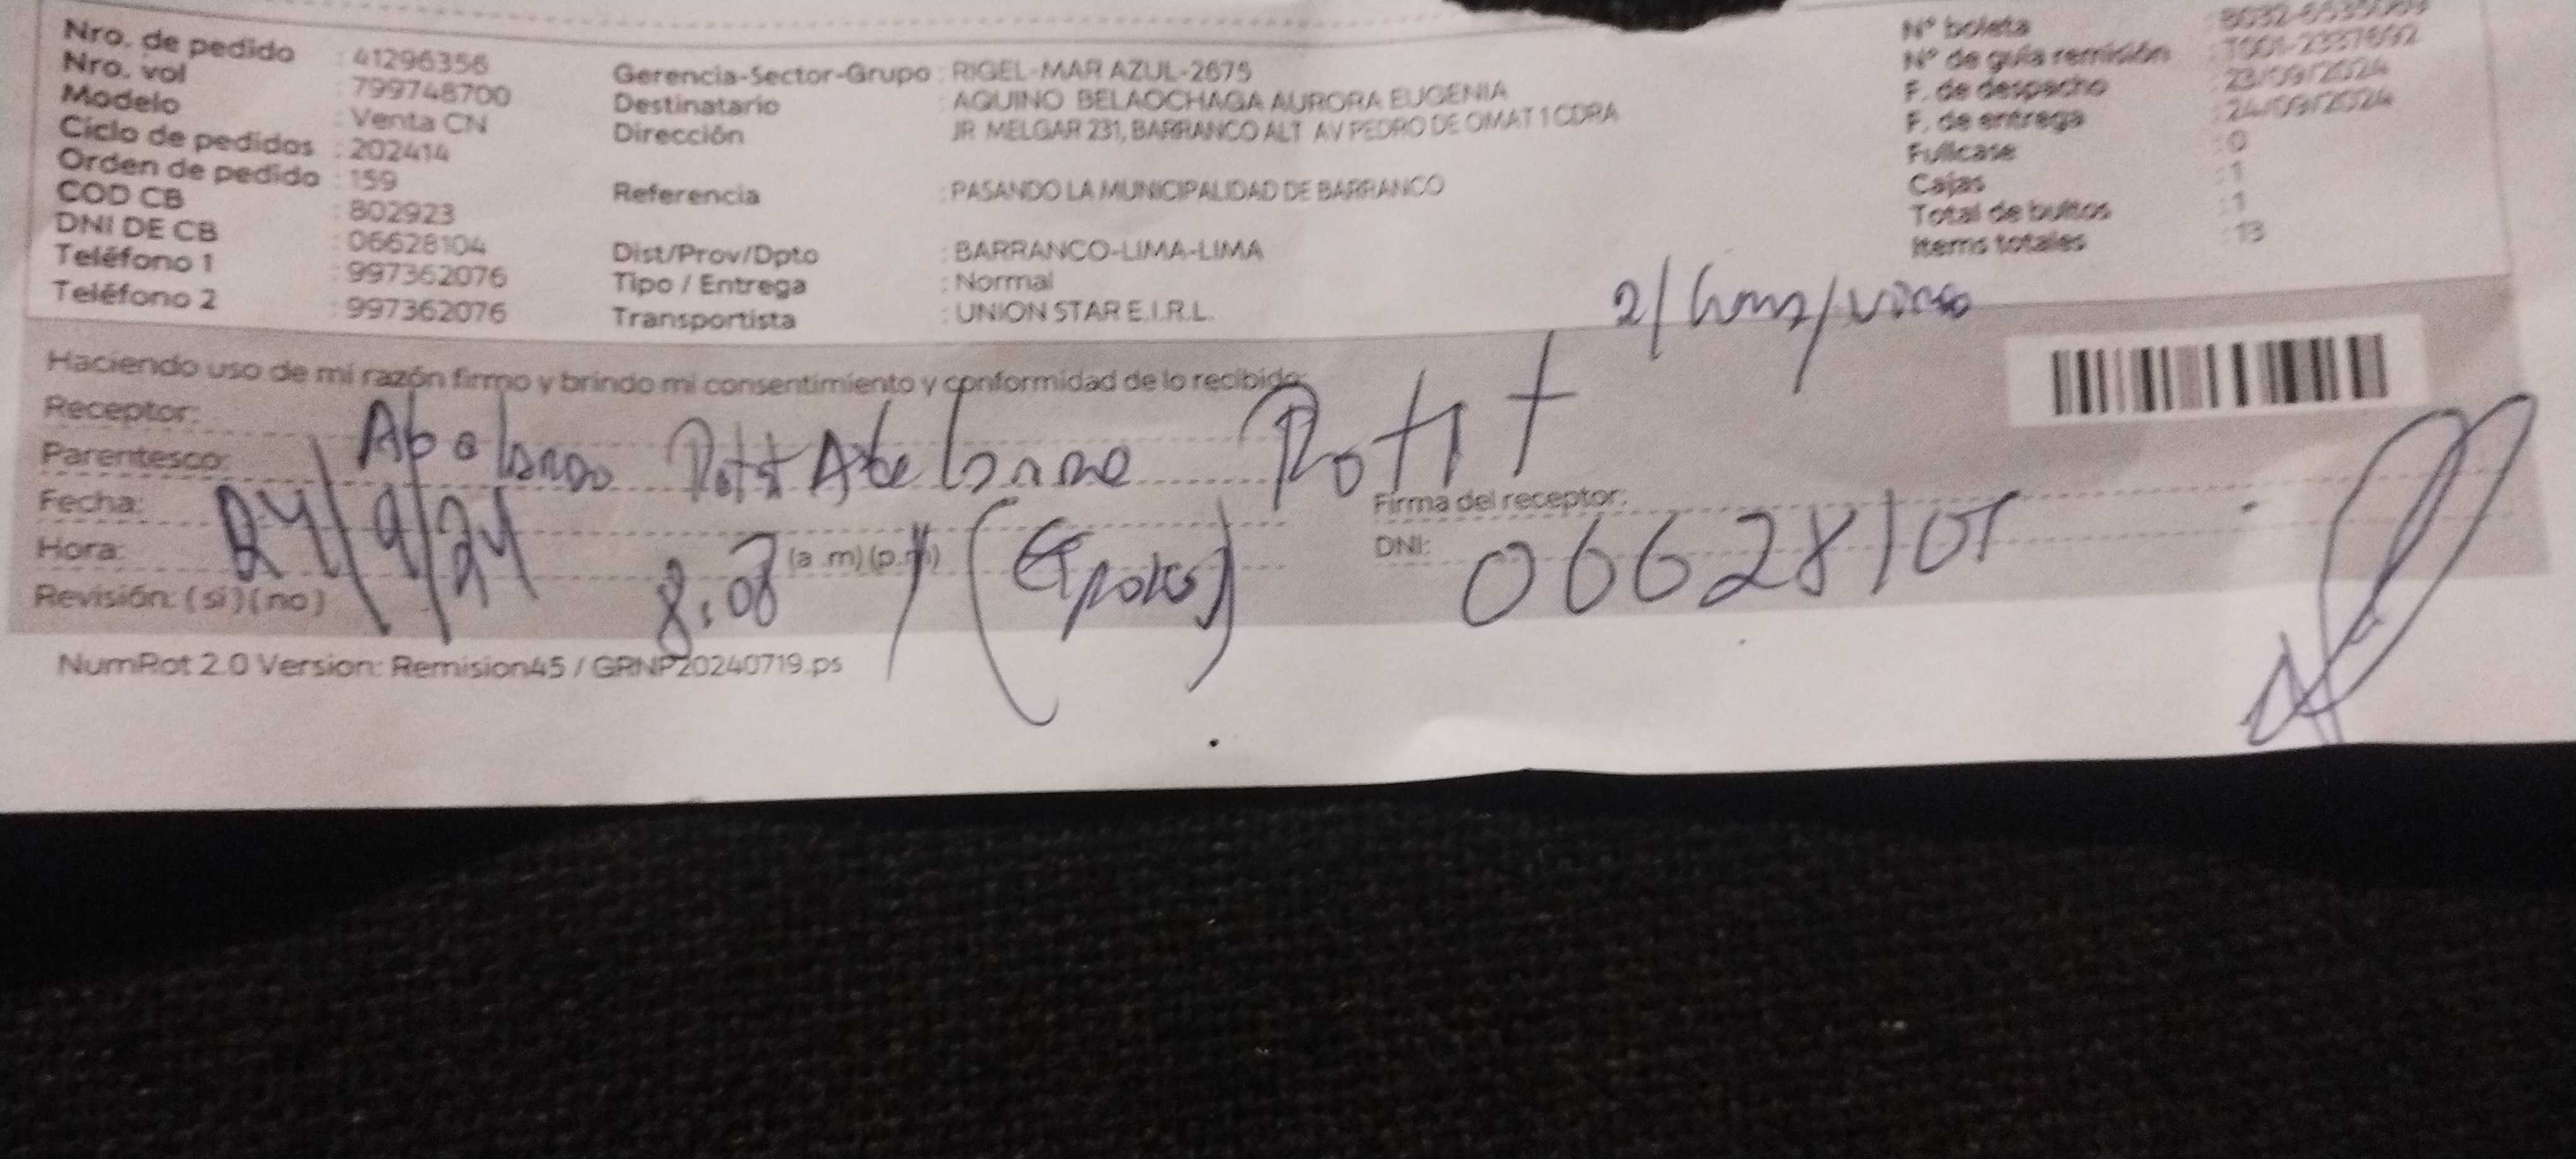 Nro. de pedido : 41296356
Nro. vol : 799748700
Modelo : Venta CN
Ciclo de pedidos : 202414
Orden de pedido : 159
COD CB : 802923
DNI DE CB : 06628104
Teléfono 1 : 997362076
Teléfono 2 : 997362076
Gerencia-Sector-Grupo : RIGEL-MAR AZUL-2675
Destinatario : AQUINO BELAOCHAGA AURORA EUGENIA
Dirección JR MELGAR 231, BARRANCO ALT AV PEDRO DE OMAT 1 CDRA
Referencia : PASANDO LA MUNICIPALIDAD DE BARRANCO
Dist/Prov/Dpto : BARRANCO-LIMA-LIMA
Tipo / Entrega : Normal
Transportista : UNION STAR E.I.R.L.
N° boleta
N° de guía remisión : T001-2337692
F. de despacho : 23/09/2024
F. de entrega : 24/09/2024
Fullcase : 0
Cajas : 1
Total de bultos : 1
Items totales : 13
Haciendo uso de mi razón firmo y brindo mi consentimiento y conformidad de lo recibido:
Receptor:
Parentesco:
Fecha: 24/9/24
Hora: 8:08 (a.m) (p.m)
Revisión: (si) (no)
Firma del receptor:
DNI:
NumRot 2.0 Version: Remision45 / GRNP20240719.ps